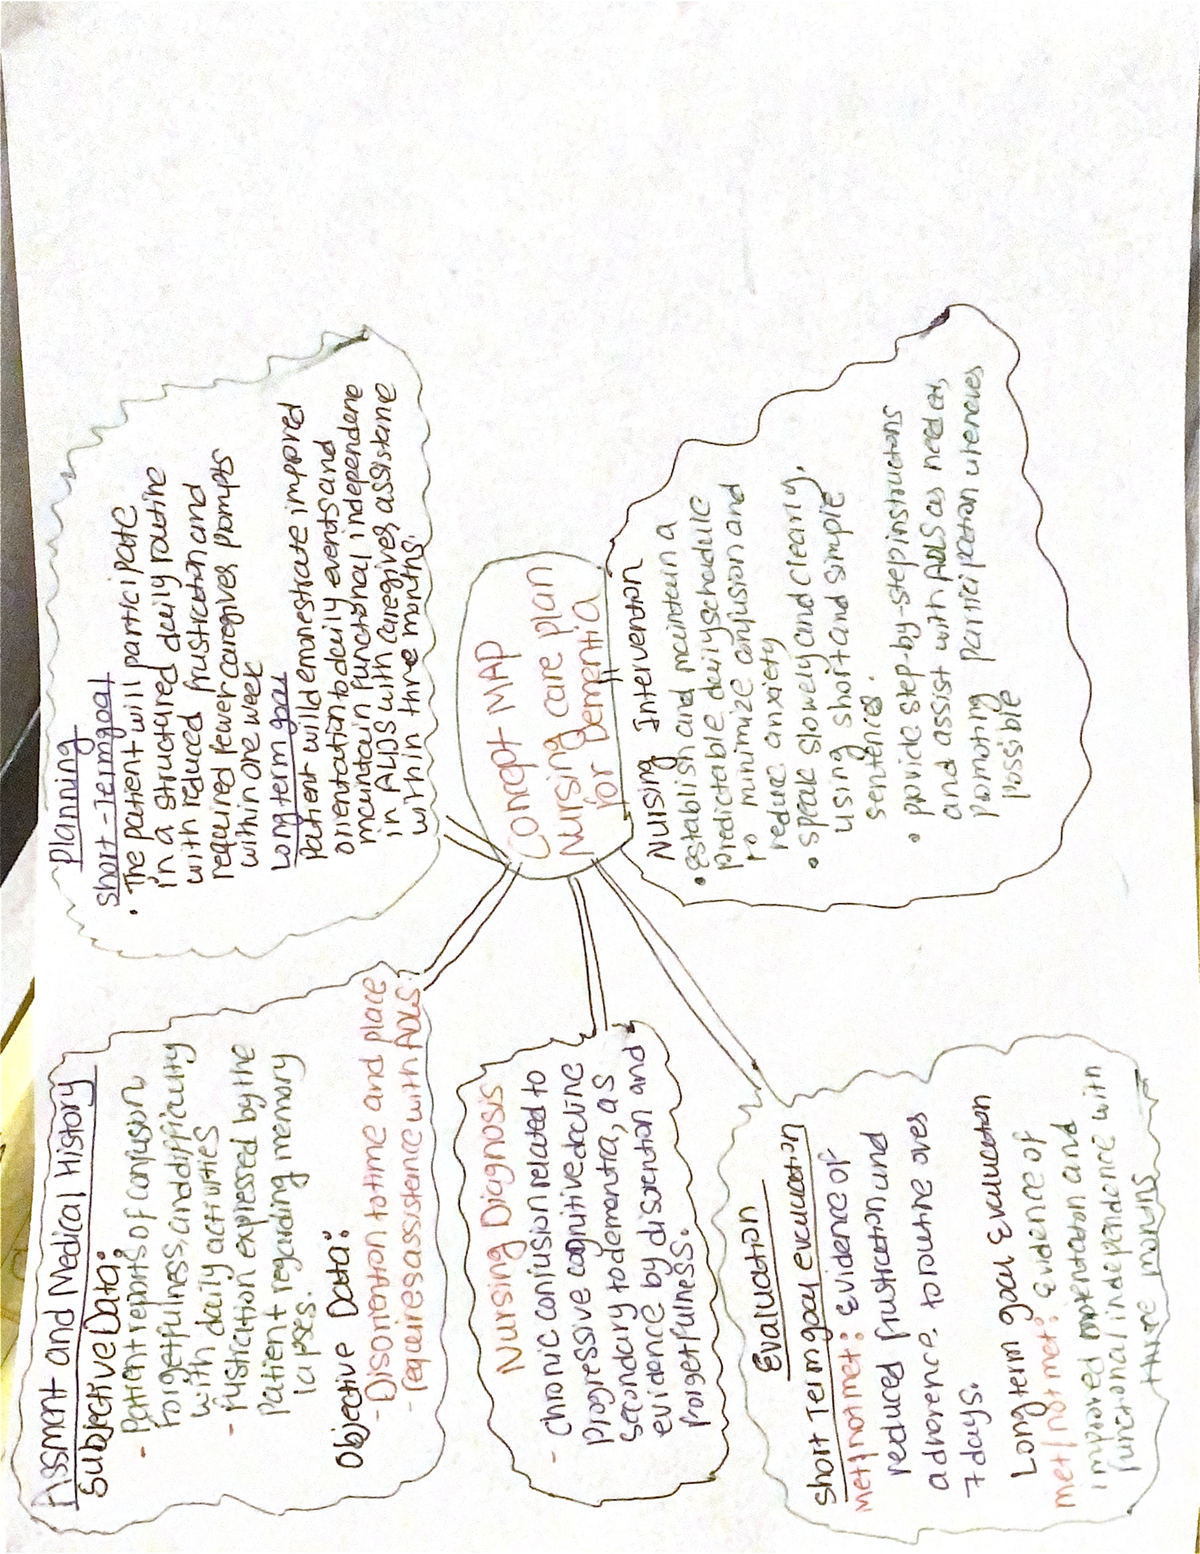 Assment and Medical History
Subjective Data:
- Patient reports of confusion
forgetfulness, and difficulty
with daily activities
- fustration expressed by the
patient regarding memory
lapses.
Objective Data:
- Disoriention to time and place
- requires assistence with ADLs.
Planning
Short-Termgoal
• The patient will participate
in a structured daily routine
with reduced frustration and
required fewer caregives prompts
within one week
Long term goal
Patient will demonestrate
orientation to daily events and
maintain functional independene
in ALDS with caregives assistene
within three months.
Concept MAP
Nursing care plan
for Dementia
Nursing Diagnosis
- Chronic confusion related to
progressive cognitive decline
secondary to dementra, as
evidence by and
forgetfulness.
Nursing Intervention
• Establish and maintain a
predictable daily schadule
to minimize confusion and
reduce anxiety
• Speak slowely and clearly,
using short and simple
sentences.
• Provide step-by-step instructions
and assist with ADLs as needed,
promoting participation
possible
Evaluation
Short Term goal evaluation
met/not met: Evidence of
reduced frustration and
adherence to routine over
7 days.
Long term goal Evaluation
met/not met: Evidence of
improved orientation and
functional independence with
three months